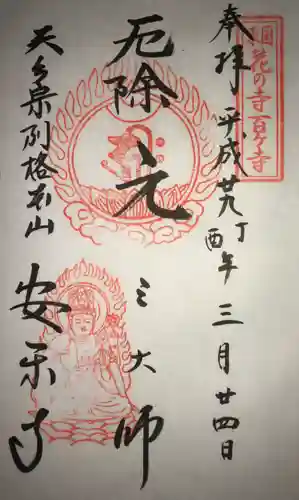 関東花の寺百ヶ寺
奉拝 平成廿九丁酉年 三月廿四日
厄除 元三大師
天台宗別格本山
安楽寺